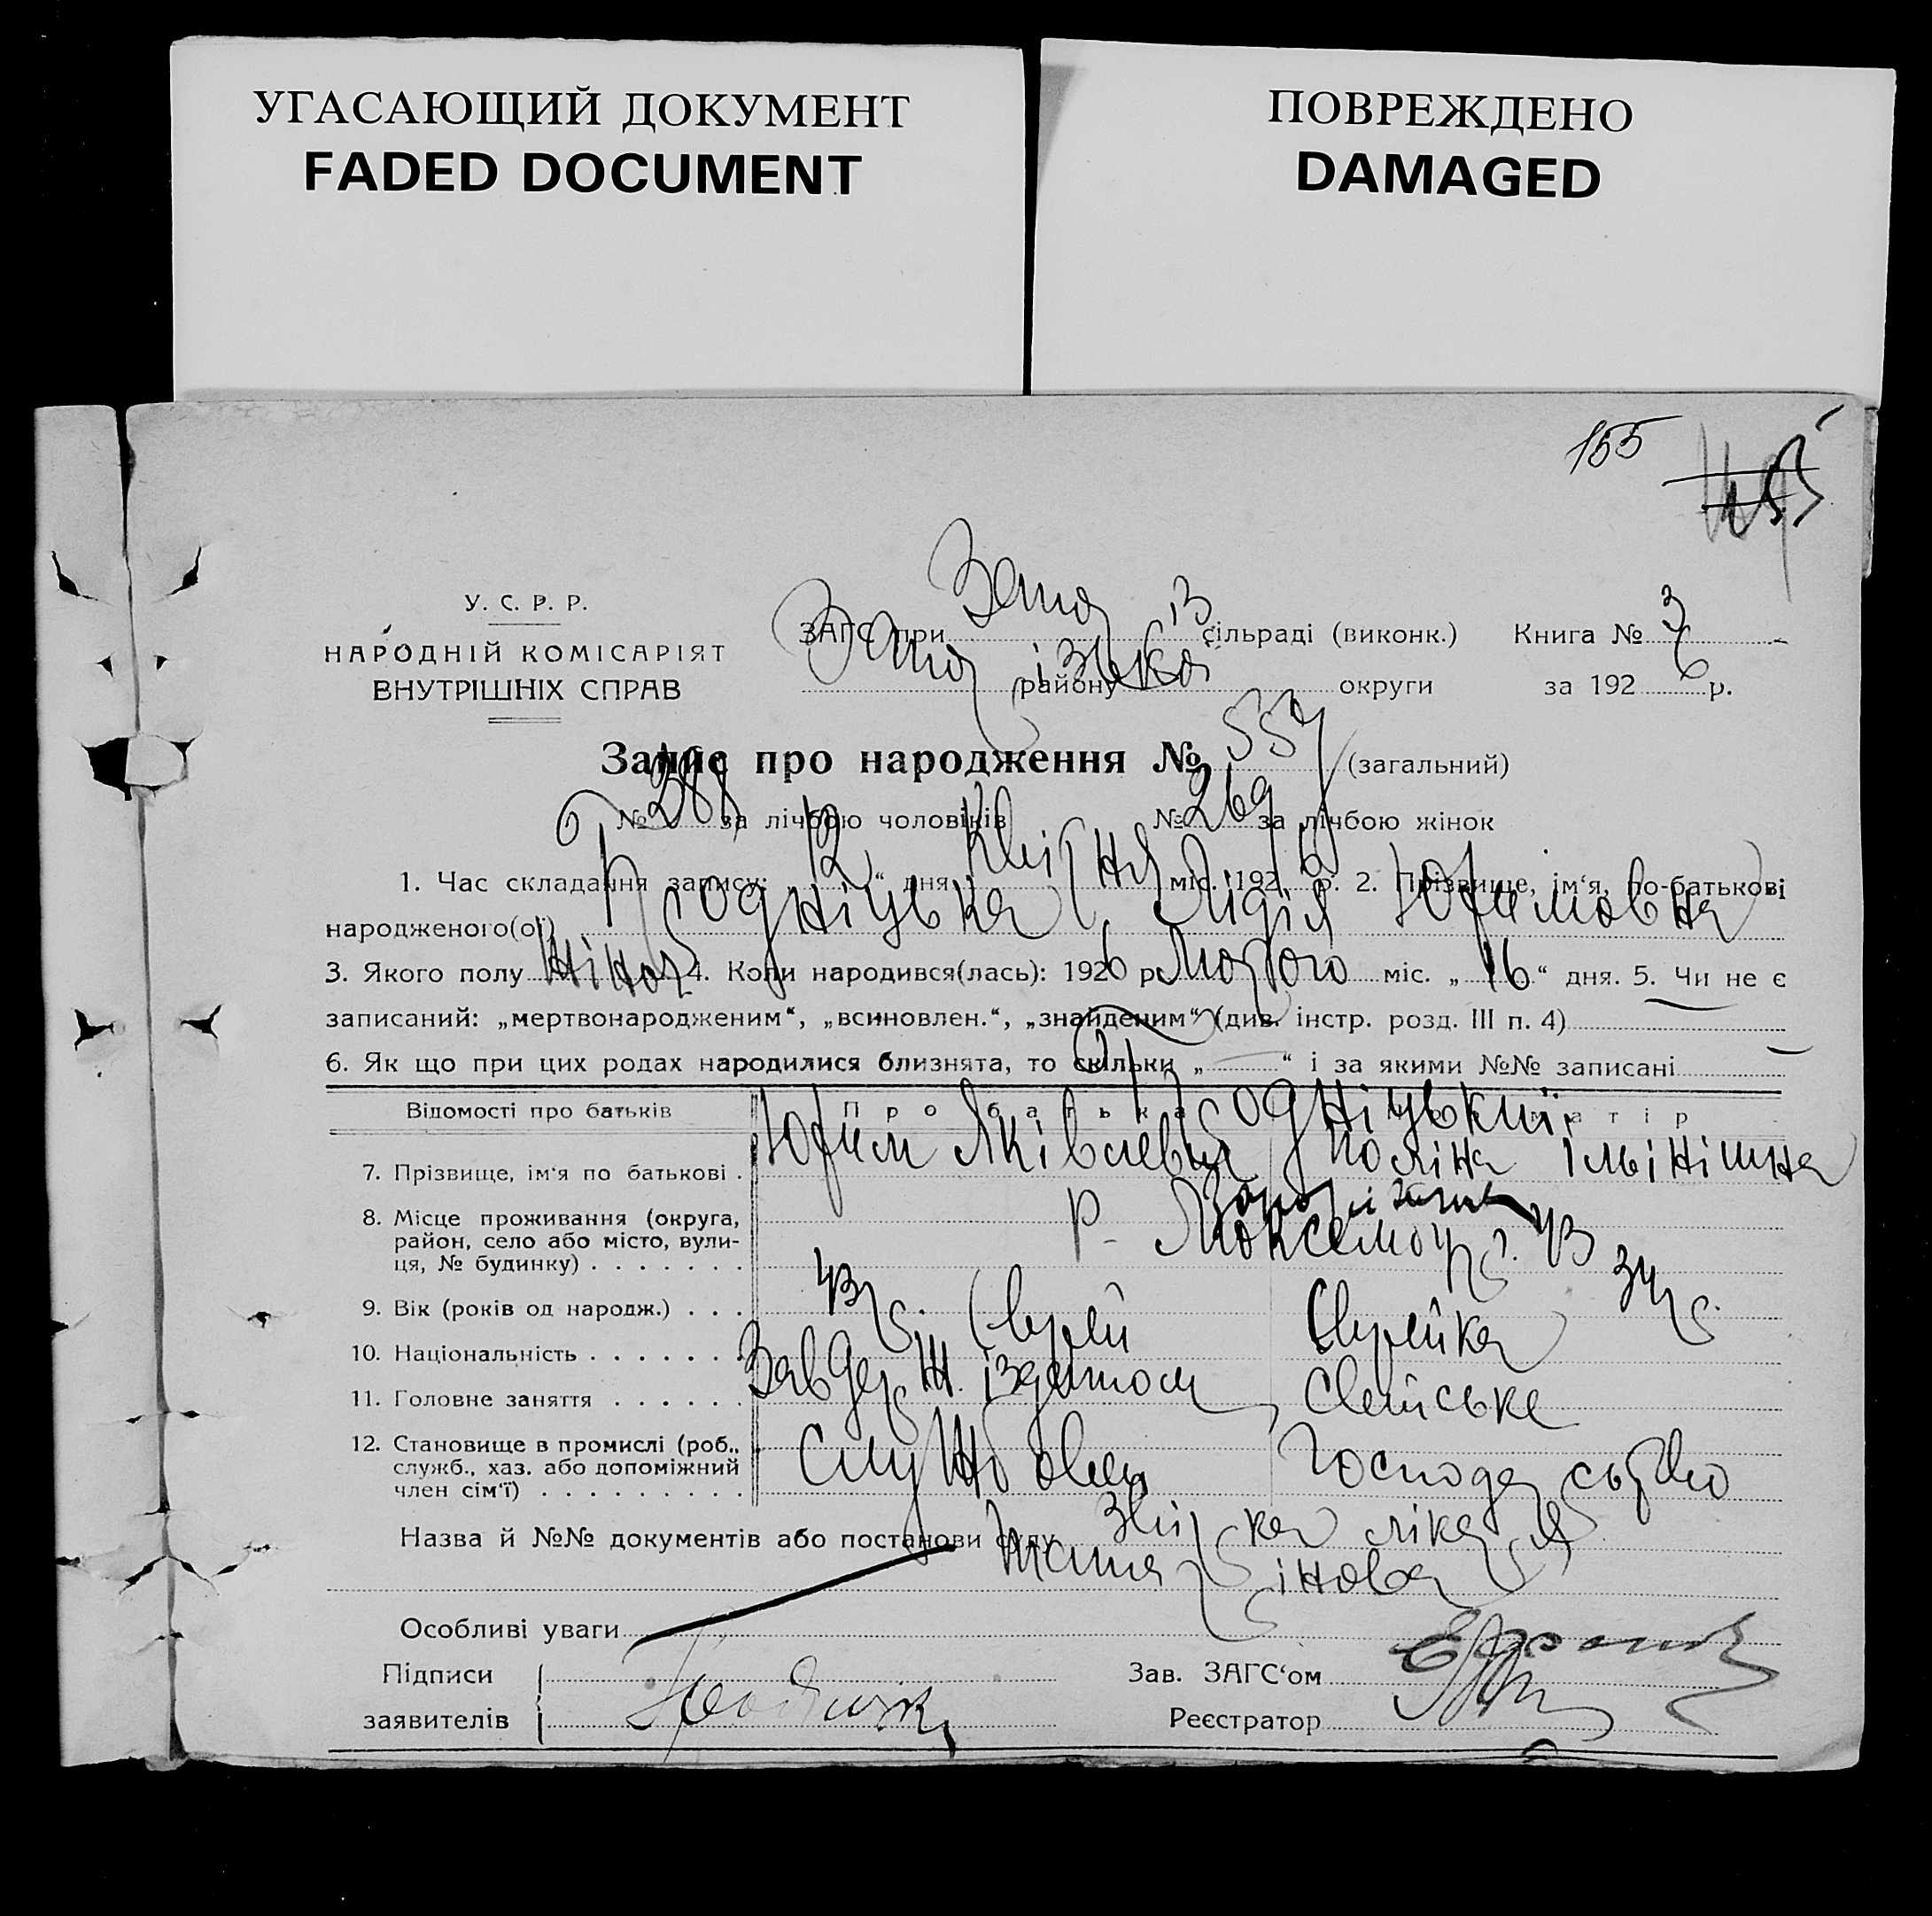 УГАСАЮЩИЙ ДОКУМЕНТ
FADED DOCUMENT
ПОВРЕЖДЕНО
DAMAGED
155
У. С. Р. Р.
НАРОДНІЙ КОМІСАРІЯТ
ВНУТРІШНІХ СПРАВ
ЗАГС при сільраді (виконк.) Книга № 3
району округи за 1926 р.
Запис про народження № 557 (загальний)
№ 288 за лічбою чоловіків № 269 за лічбою жінок
1. Час складання запису: 12 “ дня Квітня міс. 1926 р. 2. Прізвище, ім‘я, по-батькові
народженого(ої) Бродніцька Лидія Юфимовна
3. Якого полу жіноч. 4. Коли народився(лась): 1926 р. Лютого міс. „ 16 “ дня. 5. Чи не є
записаний: „мертвонародженим“, „всиновлен.“, „знайденим“ (див. інстр. розд. III п. 4)
6. Як що при цих родах народилися близнята, то скільки „ “ і за якими №№ записані
Відомості про батьків Про батька Про матір
Бродніцький
7. Прізвище, ім‘я по батькові . Юфим Яківлевич Поліна Ільінішна
8. Місце проживання (округа, район, село або місто, вулиця, № будинку) . . . . . . .
9. Вік (років од народж.) . . . 43 р. 34 р.
10. Національність . . . . . . . Єврей Єврейка
11. Головне заняття . . . . . . Свійське
12. Становище в промислі (роб., служб., хаз. або допоміжний член сім‘ї) . . . . . . . . . Службовец Господарство
Назва й №№ документів або постанови суду Звірка лікаря
Особливі уваги
Підписи
заявителів
Зав. ЗАГС‘ом
Реєстратор